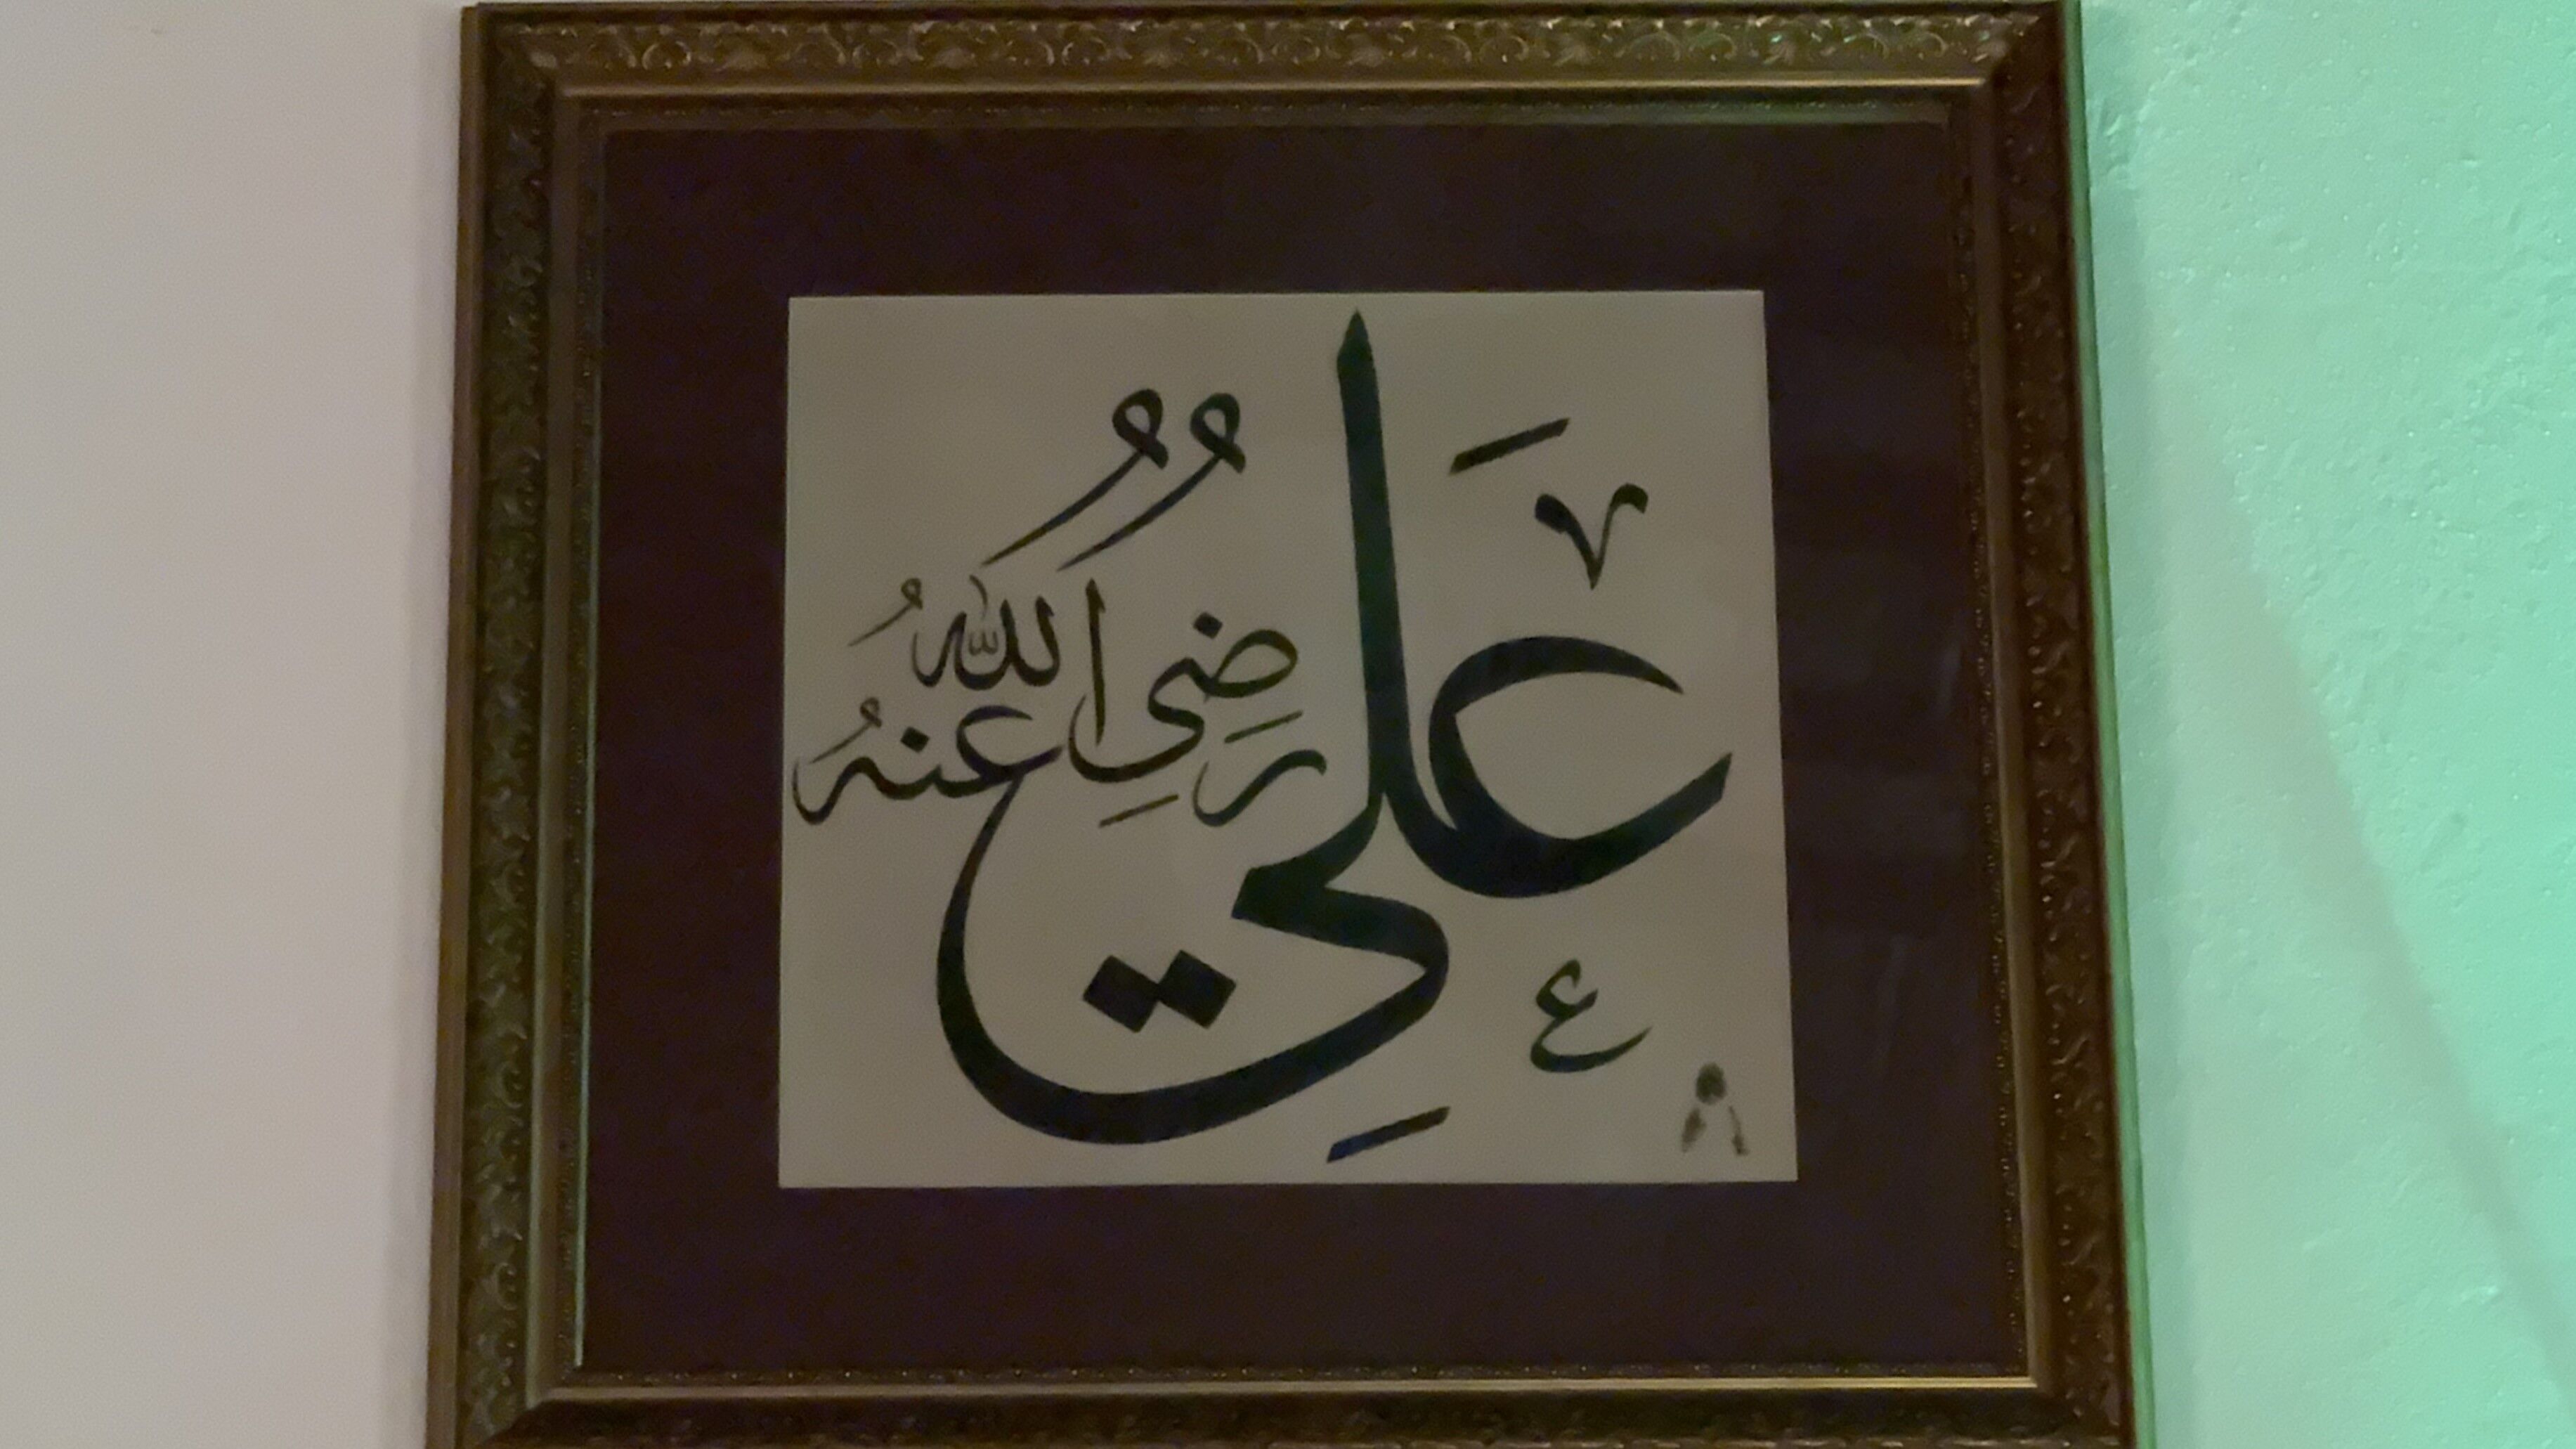 عَلِيٌّ
رَضِيَ اللهُ
عَنهُ